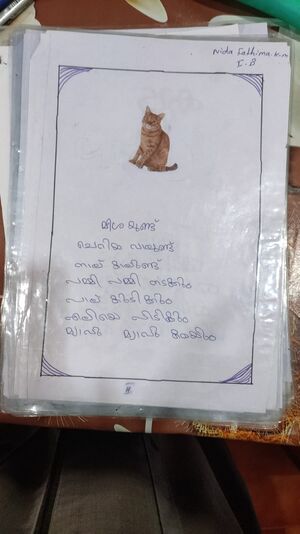 Nida Fathima. K.m
I. B
മീശ യുണ്ട്
ചെറിയ വാലുണ്ട്
നാല് കാലുണ്ട്
പമ്മി പമ്മി നടക്കും
പാല് കുടിക്കും
എലിയെ പിടിക്കും
മ്യാവൂ മ്യാവൂ കരയും